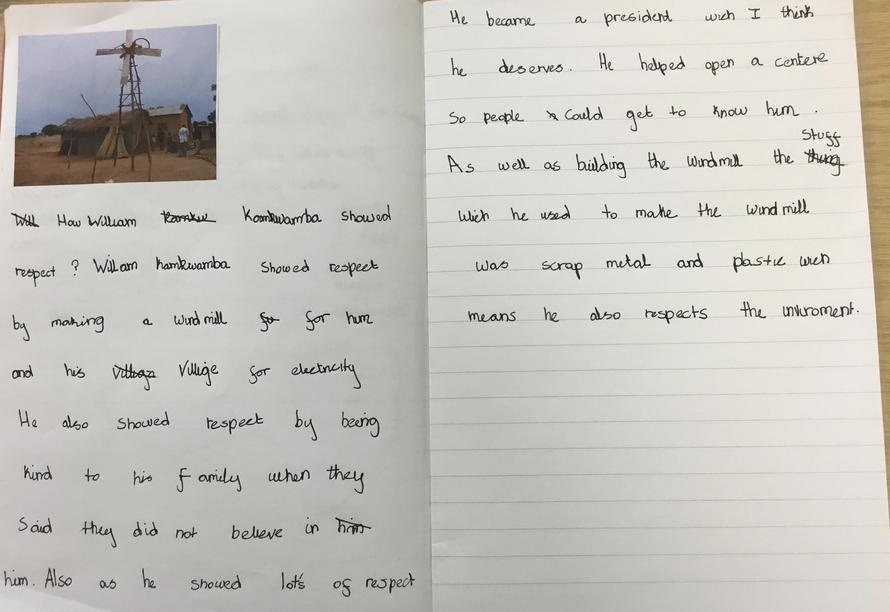 How William Kamkwamba showed
respect? William kamkwamba showed respect
by making a windmill for him
and his Villige for electricity
He also showed respect by being
kind to his family when they
Said they did not believe in
him. Also as he showed lot's of respect
He became a president wich I think
he deserves. He helped open a centere
so people could get to know him.
Stuff
As well as building the windmill the
wich he used to make the windmill
was scrap metal and plastic wich
means he also respects the inviroment.